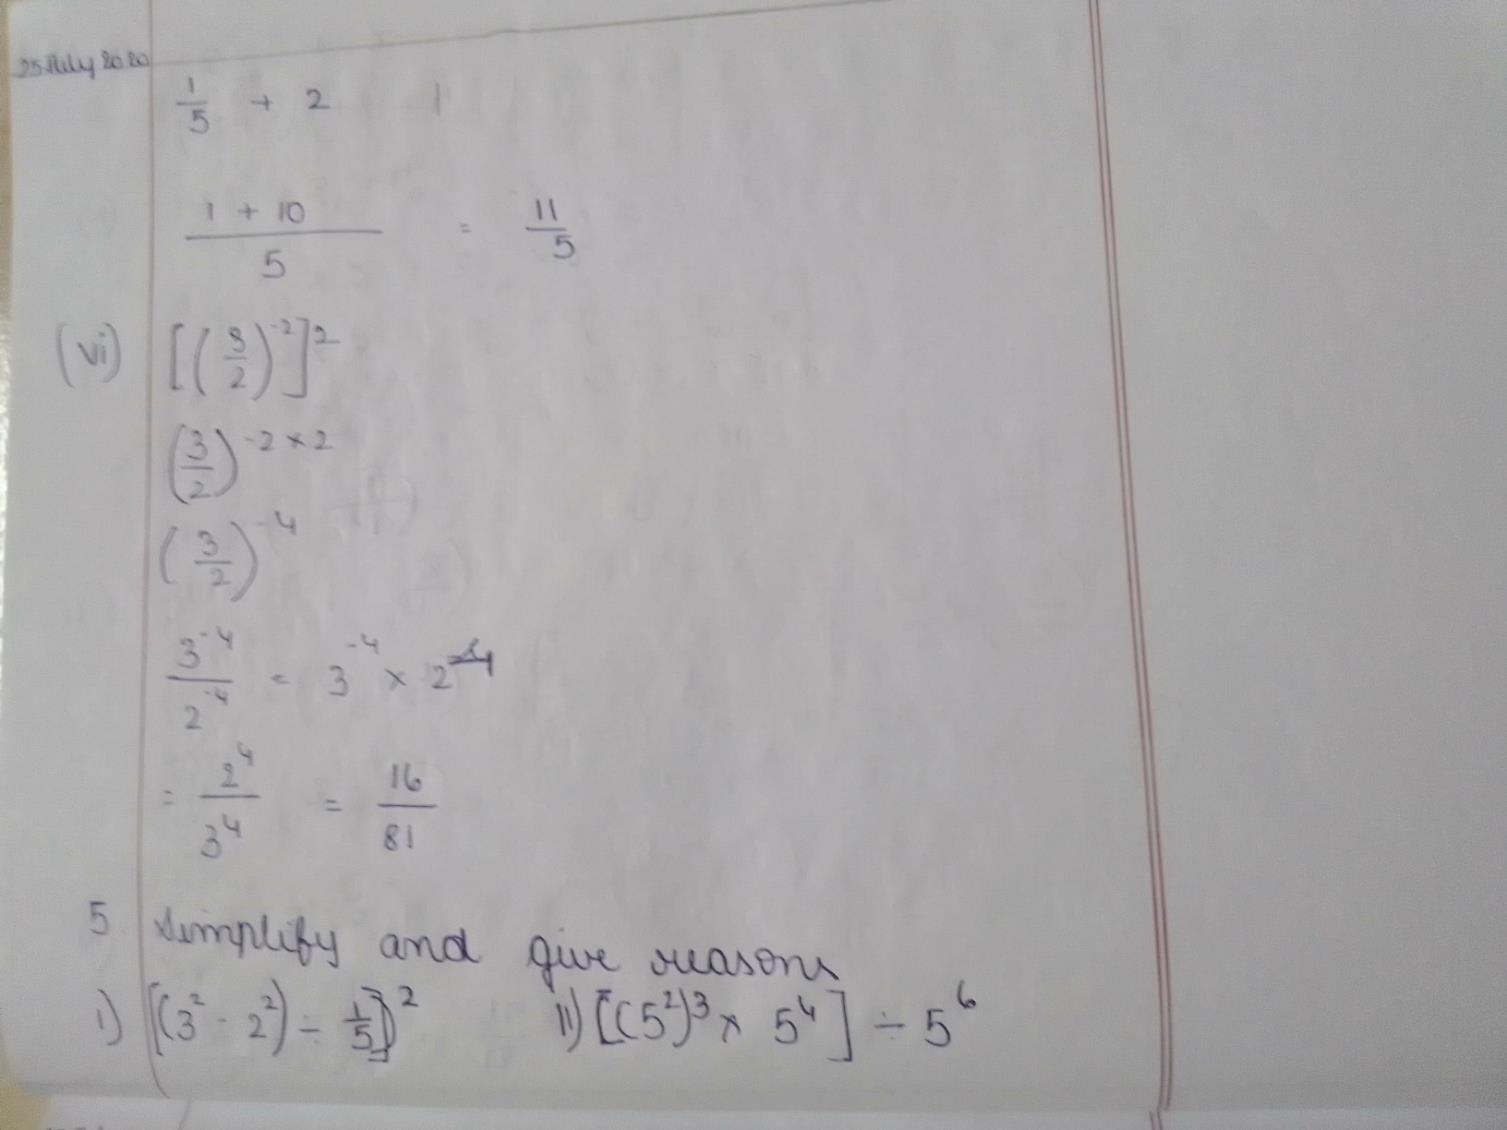 25 July 2020
1/5 + 2
(1 + 10)/5 = 11/5
(vi) [(3/2)^-2]^2
(3/2)^-2×2
(3/2)^-4
3^-4/2^-4 = 3^-4 × 2^4
= 2^4/3^4 = 16/81
5. Simplify and give reasons
i) [(3^2 - 2^2) ÷ 1/5]^2 ii) [(5^2)^3 × 5^4] ÷ 5^6